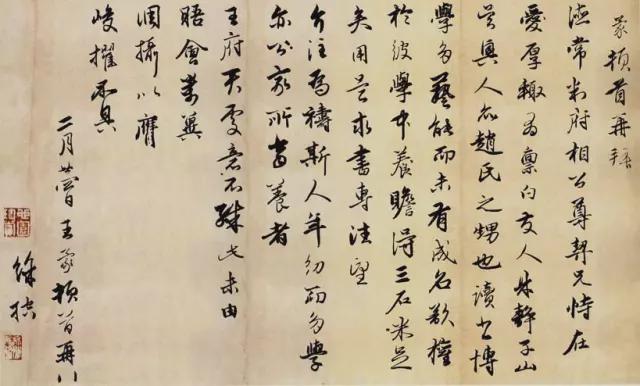 蒙頓首再拜
德常判府相公尊契兄恃在
愛厚輙有禀白友人朱靜子山
吳興人亦趙氏之甥也讀書博
學多藝能而未有成名欲權
於彼學中養贍得三石米足
矣用是求書專注望
介注為禱斯人年幼而多學
尔公家所當養者
王府天處意不殊此未由
晤會萬冀
調攝以膺
峻擢不具
二月日王蒙頓首再拜
徐